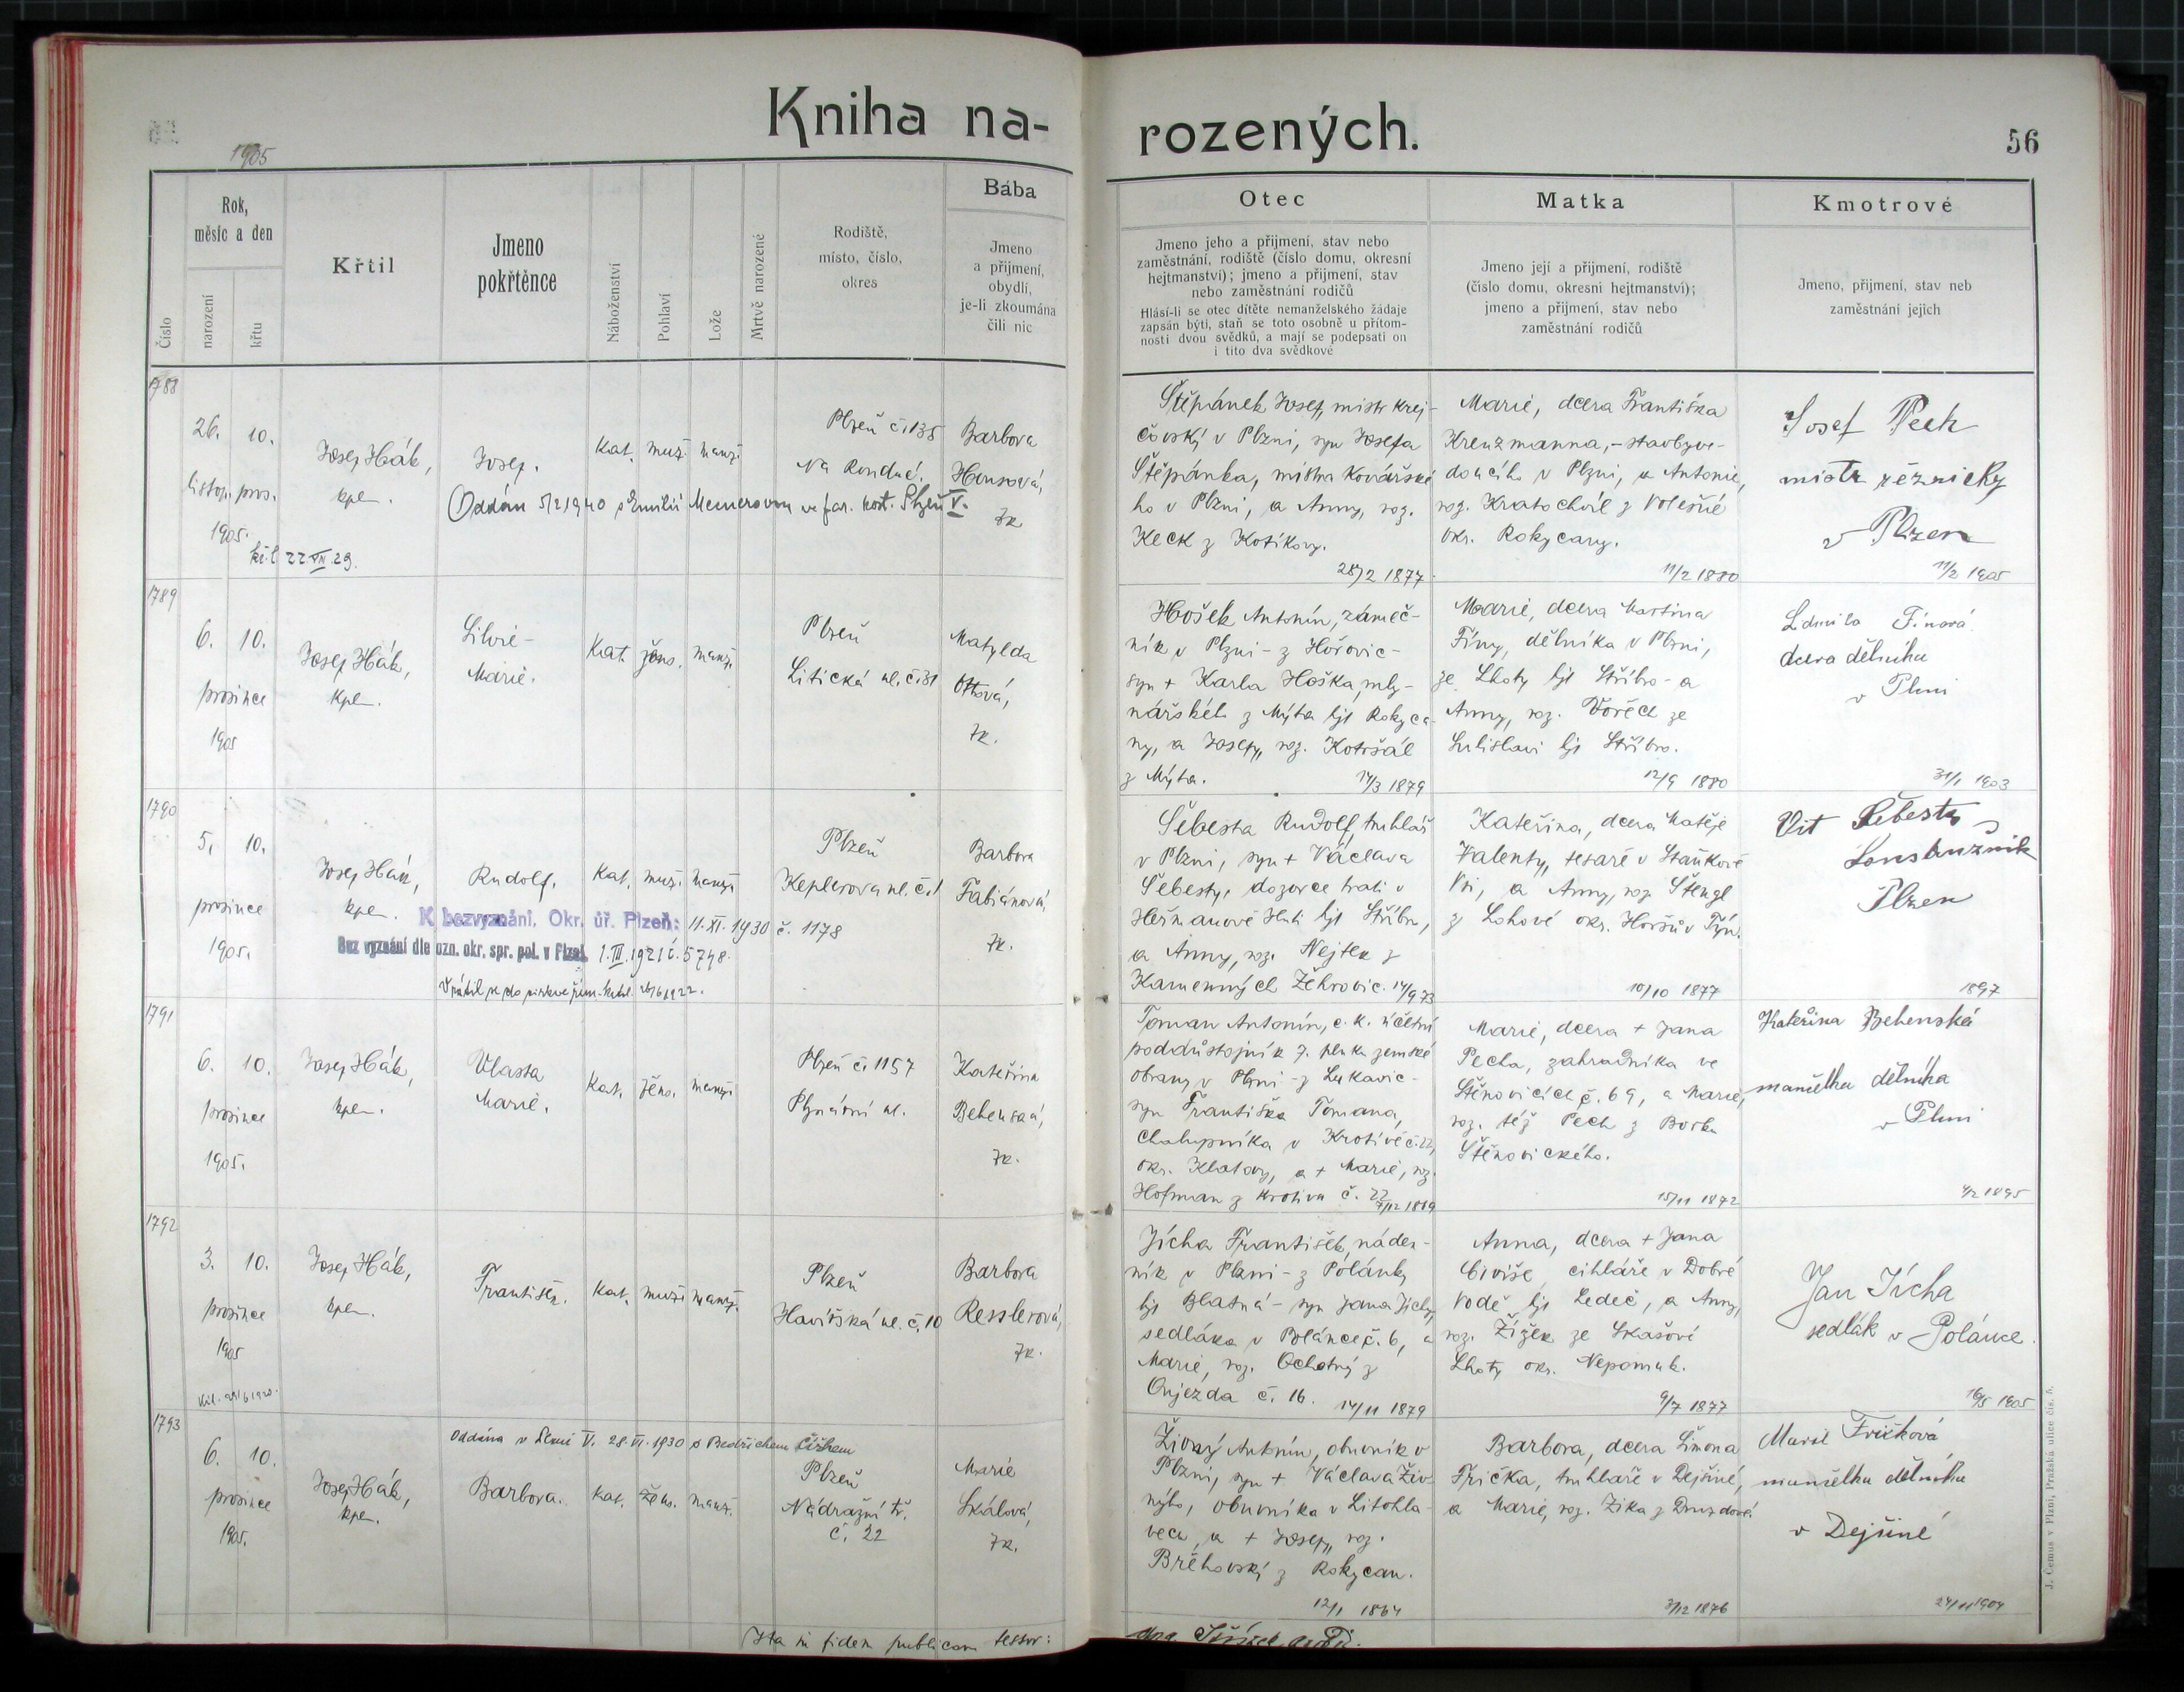 Kniha na-
rozených.
56
1905
Číslo
Rok,
měsíc a den
narození
křtu
Křtil
Jmeno
pokřtěnce
Náboženství
Pohlaví
Lože
Mrtvě narozené
Rodiště,
místo, číslo,
okres
Bába
Jmeno
a přijmení,
obydlí,
je-li zkoumána
čili nic
Otec
Jmeno jeho a přijmení, stav nebo
zaměstnání, rodiště (číslo domu, okresní
hejtmanství); jmeno a přijmení, stav
nebo zaměstnání rodičů
Hlásí-li se otec dítěte nemanželského žádaje
zapsán býti, staň se toto osobně u přítom-
nosti dvou svědků, a mají se podepsati on
i tito dva svědkové
Matka
Jmeno její a přijmení, rodiště
(číslo domu, okresní hejtmanství);
jmeno a přijmení, stav nebo
zaměstnání rodičů
Kmotrové
Jmeno, přijmení, stav neb
zaměstnání jejich
1788
26. 10.
listop. pros.
1905.
Josef Hák,
kpl.
Josef.
Kat. muž. manž.
Plzeň č. 1135
Na Rondue.
Barbora
Hausová,
zk.
Oddán 5/2 1940 s Emilií ve far. kost. Plzeň V.
22.VII.29.
Štěpánek Josef, mistr krej-
čovský v Plzni, syn Josefa
Štěpánka, mistra kovářské-
ho v Plzni, a Anny, roz.
Keck z Kotíkova.
28/2 1877
Marie, dcera Františka
Kreuzmanna, - stavbyve-
doucího v Plzni, a Antonie,
roz. Kratochvíl z Volešné
okr. Rokycany.
11/2 1880
Josef Pech
mistr řeznický
v Plzen
11/2 1905
1789
6. 10.
prosince
1905
Josef Hák,
kpl.
Silvie-
Marie.
Kat. žens. manž.
Plzeň
Litická ul. č. 31
Matylda
Ottová,
zk.
Hošek Antonín, zámeč-
ník v Plzni - z Hořovic -
syn + Karla Hoška, mly-
nářského z Mýta hjt Rokyca-
ny, a Josefy, roz. Kotršál
z Mýta.
14/3 1879
Marie, dcera Martina
Fíny, dělníka v Plzni,
ze Lhoty hjt Stříbro - a
Anny, roz. Vořech ze
Sulislavi hjt Stříbro.
12/9 1880
Ludmila Fínová
dcera dělníka
v Plzni
31/1 1903
1790
5. 10.
prosince
1905.
Josef Hák,
kpl.
Rudolf.
Kat. muž. manž.
Plzeň
Keplerova ul. č. 1
Barbora
Fabiánová,
zk.
K bezvyznání. Okr. úř. Plzeň: 11.XI.1930 č. 1178
Bez vyznání dle ozn. okr. spr. pol. v Plzni. 1.III.1921 č. 5748.
Vrátil se do církve řím.-katol. 26/6 1922.
Šebesta Rudolf, truhlář
v Plzni, syn + Václava
Šebesty, dozorce trati v
Heřmanově Huti hjt Stříbro,
a Anny, roz. Nejtek z
Kamenných Žehrovic. 14/9 73
Kateřina, dcera Matěje
Valenty, tesaře v Staňkově
Vsi, a Anny, roz. Štengl
z Lohové okr. Horšův Týn.
10/10 1877
Vít Šebesta
Soustružník
Plzen
1897
1791
6. 10.
prosince
1905.
Josef Hák,
kpl.
Vlasta
Marie.
Kat. žens. manž.
Plzeň č. 1157
Plynární ul.
Kateřina
Behenská,
zk.
Toman Antonín, c. k. účetní
poddůstojník 7. pluku zemské
obrany v Plzni - z Lukavic -
syn Františka Tomana,
chalupníka v Krotívě č. 22,
okr. Klatovy, a + Marie, roz.
Hofman z Krotiva č. 22
7/12 1869
Marie, dcera + Jana
Pecha, zahradníka ve
Štěnovicích č. 69, a Marie,
roz. též Pech z Borku
Štěnovického.
15/11 1872
Kateřina Behenská
manželka dělníka
v Plzni
4/2 1895
1792
3. 10.
prosince
1905
Josef Hák,
kpl.
František.
Kat. muž. manž.
Plzeň
Havířská ul. č. 10
Barbora
Resslerová,
zk.
Jícha František, náden-
ník v Plzni - z Polánky
hjt Blatná - syn Jana Jíchy,
sedláka v Polánce č. 6, a
Marie, roz. Ochotný z
Oujezda č. 16.
14/11 1879
Anna, dcera + Jana
Liviše, cihláře v Dobré
Vodě hjt Ledeč, a Anny,
roz. Žížek ze Skašovi
Lhoty okr. Nepomuk.
9/7 1877
Jan Jícha
sedlák v Polánce.
16/5 1905
1793
6. 10.
prosince
1905.
Josef Hák,
kpl.
Oddána v Plzni V. 28.VI.1930 s Bedřichem Čížkem
Barbora.
Kat. žens. manž.
Plzeň
Nádražní tř.
č. 22
Marie
Skálová,
zk.
Živný Antonín, obuvník v
Plzni, syn + Václava Živ-
nýho, obuvníka v Litohla-
vech, a + Josefy, roz.
Břéhovský z Rokycan.
12/1 1864
Barbora, dcera Šimona
Frička, truhláře v Dejšině,
a Marie, roz. Zika z Druzdové.
3/12 1876
Marie Fričková
manželka dělníka
v Dejšině
24/11 1904
Ita in fidem publicam testor:
J. Čemus v Plzni, Pražská ulice čís. 5.